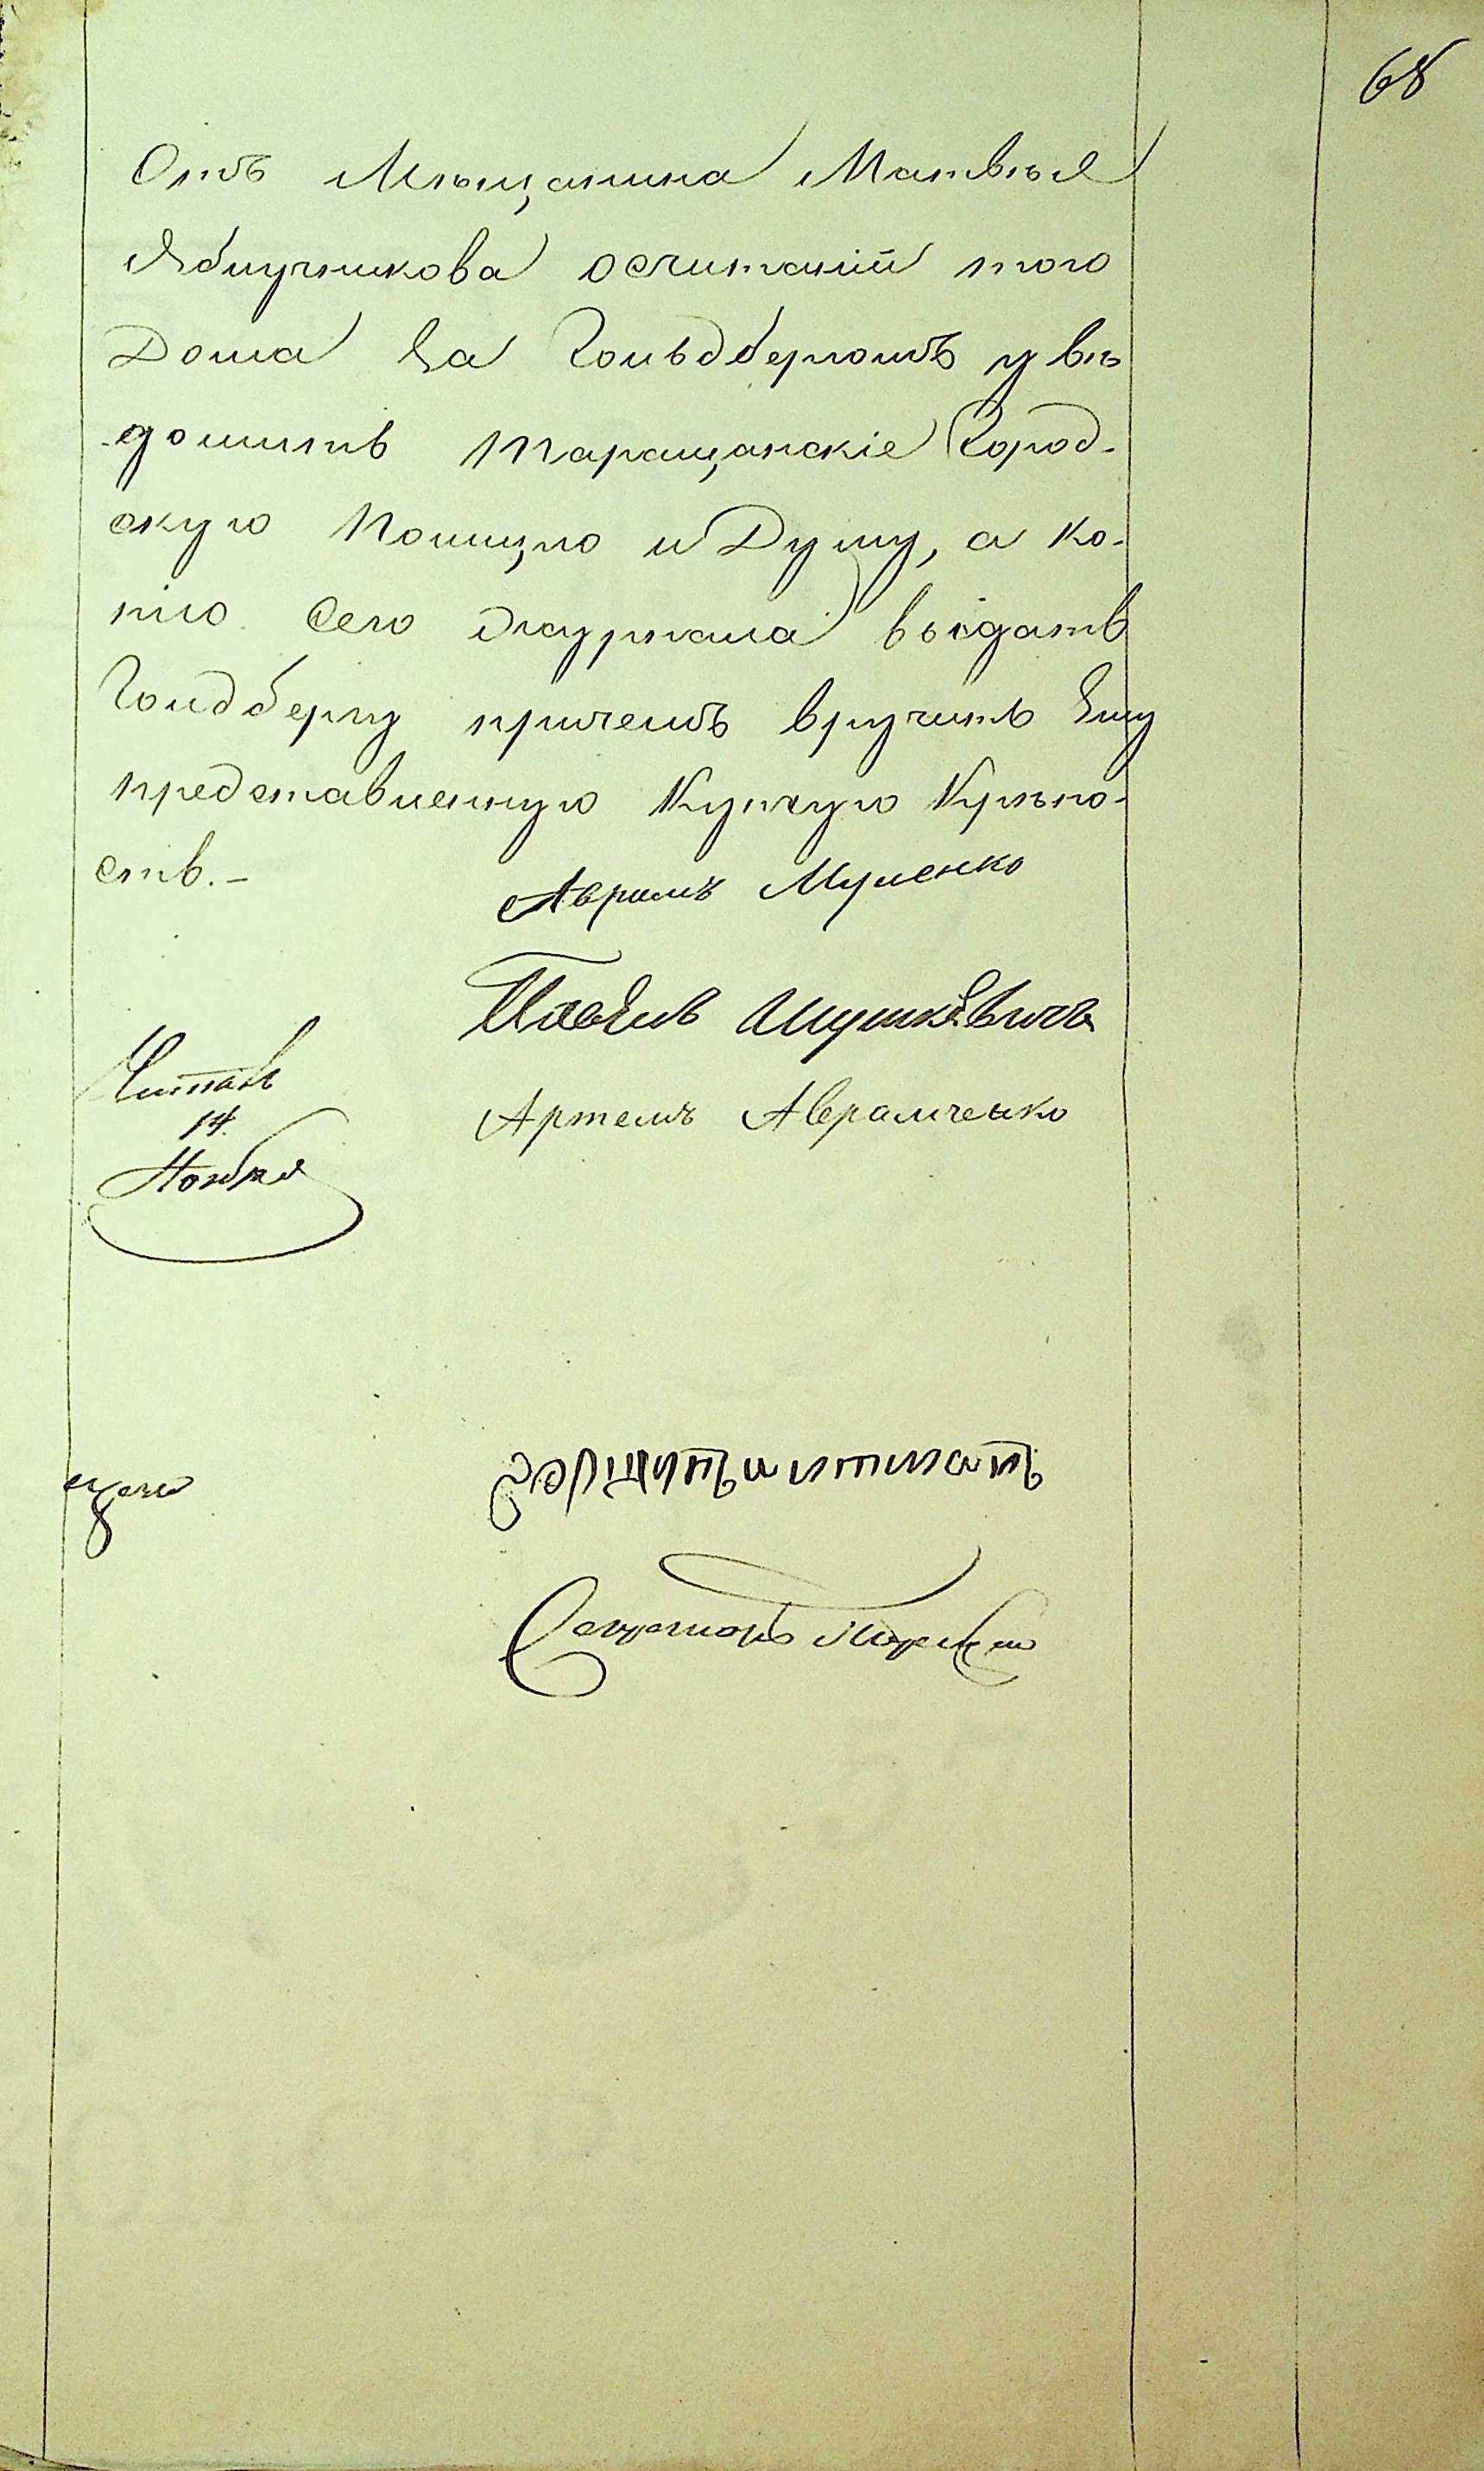 68
Отъ Мѣщанина Матвѣя
Яблучникова осчитаніи того
Дома За Гольдбергомъ увѣ
домить Таращанскіе Город-
скую Полицію и Думу, а ко-
пію Сего Журнала выдать
Голдбергу причемъ вручить Ему
представленную Купчую Крѣпо-
сть.-
Аврамъ Муленко
Павелъ Шушкѣвичъ
Читалъ
14
Ноября
Артемъ Аврамченко
Секретарь